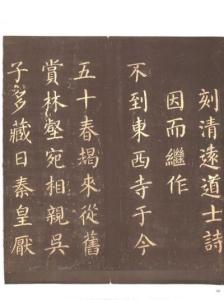 刻清遠道士詩
因而繼作
不到東西寺于今
五十春朅來從舊
賞林壑宛相親吳
子多藏日秦皇厭